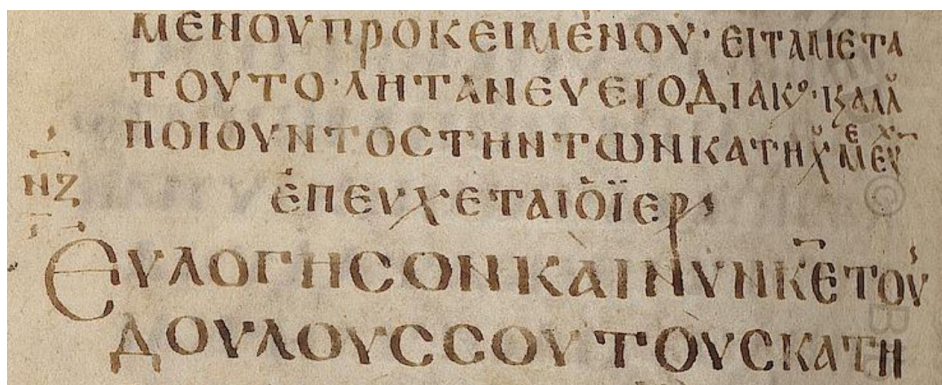 ΜΕΝΟΥ ΠΡΟΚΕΙΜΕΝΟΥ· ΕΙΤΑ ΜΕΤΑ
ΤΟΥΤΟ· ΛΗΤΑΝΕΥΕΙ Ο ΔΙΑΚΟ·
ΠΟΙΟΥΝΤΟΣ ΤΗΝ ΤΩΝ ΚΑΤΗΧΜΕΥ ΕΧ
ΝΖ
ἘΠΕΥΧΕΤΑΙ ὉΪΕΡ
ΕΥΛΟΓΗΣΟΝ ΚΑὶ ΝΥΝ ΚΕ ΤΟΥ
ΔΟΥΛΟΥΣ ΣΟΥ ΤΟΥΣ ΚΑΤΗ